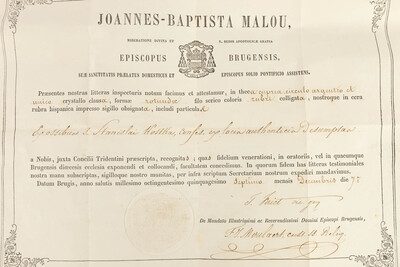 JOANNES-BAPTISTA MALOU,
MISERATIONE DIVINA ET S. SEDIS APOSTOLICÆ GRATIA
EPISCOPUS BRUGENSIS,
SUÆ SANCTITATIS PRÆLATUS DOMESTICUS ET EPISCOPUS SOLIO PONTIFICIO ASSISTENS,
Præsentes nostras litteras inspecturis notum facimus et attestamur, in theca cuprea circulo argenteo et
unica crystallo clausa, formæ rotundæ filo serico coloris rubri colligata, nostroque in cera
rubra hispanica impresso sigillo obsignata, includi particulas
S. Stanislai Kostka, conf. ex locis authenticis desumptas
a Nobis, juxta Concilii Tridentini præscripta, recognitas; quas fidelium venerationi, in oratoriis, vel in quacumque
Brugensis dioecesis ecclesia exponendi et collocandi, facultatem in Domino concedimus. In quorum fidem has litteras testimoniales
nostra manu subscriptas, sigilloque nostro munitas, per infra scriptum Secretarium nostrum expediri mandavimus.
Datum Brugis, anno salutis millesimo octingentesimo quinquagesimo septimo mensis die
De Mandato Illustrissimi ac Reverendissimi Domini Episcopi Brugensis,